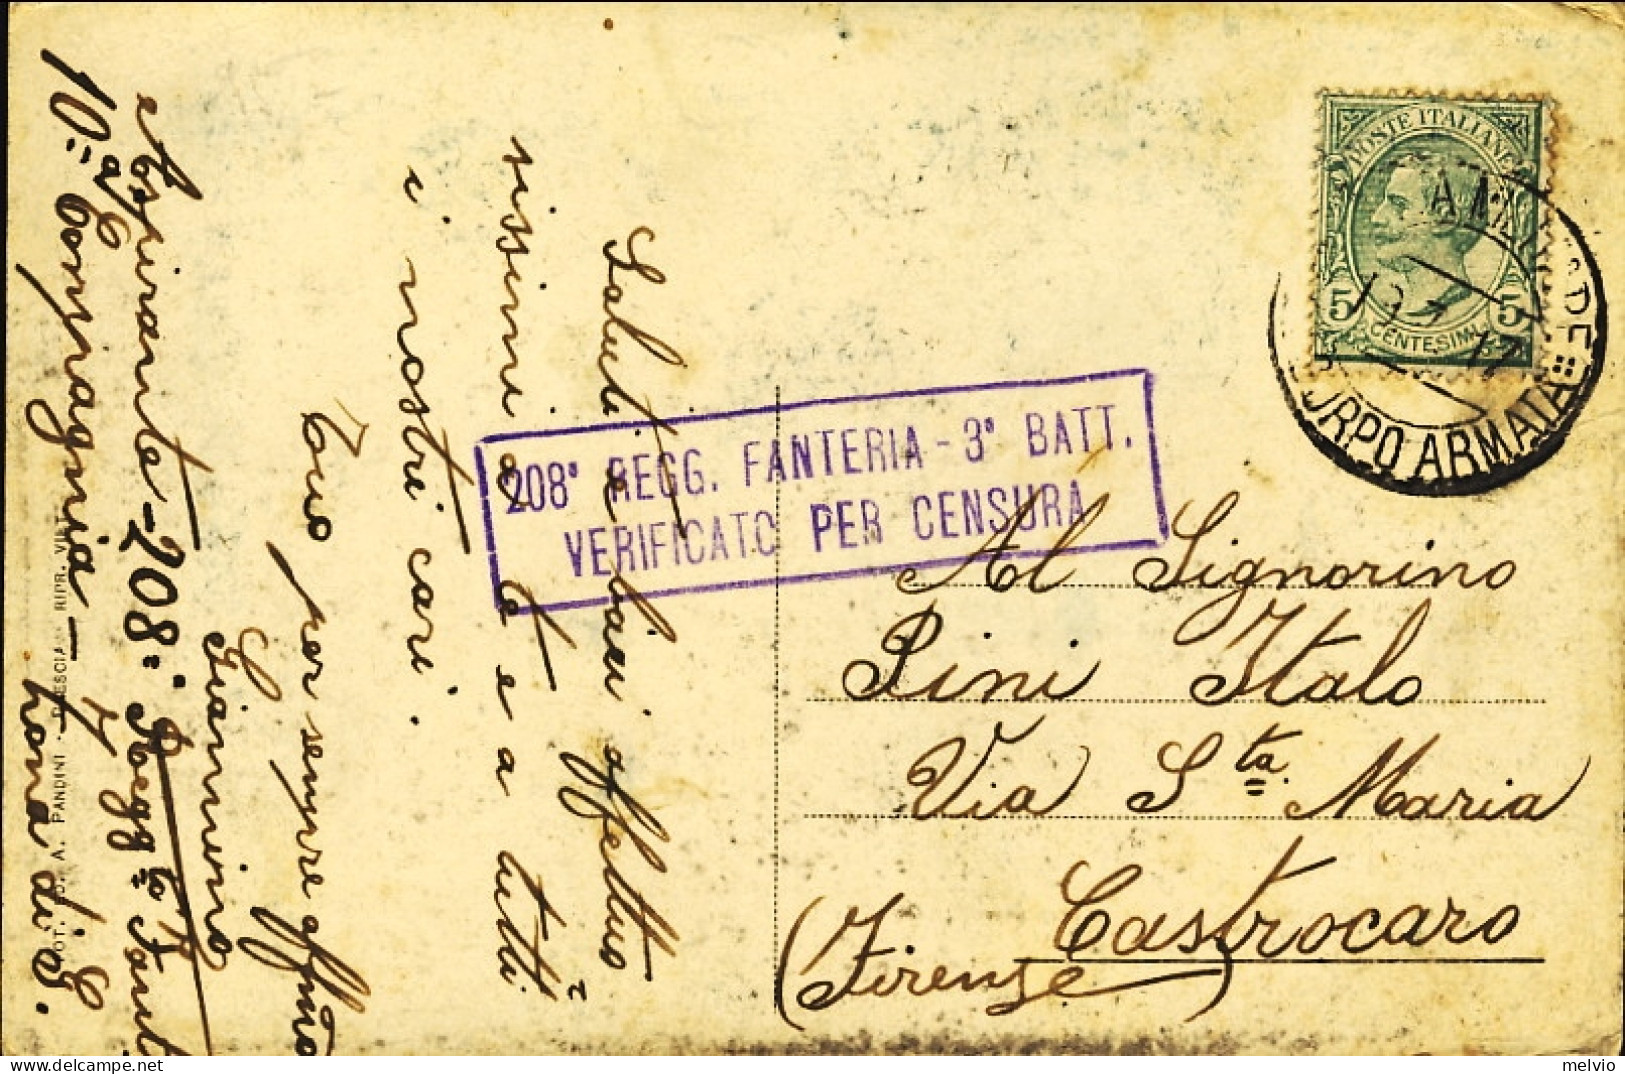 Saluti e baci affettuo
sissimi a te e a tutti
i nostri cari.
Tuo per sempre affmo
Giannino
Aspirante - 208° Regg.to Fant
10ª Compagnia -
zona di G.
FOT. A. PANDINI - BRESCIA RIPR. VIET.
208° REGG. FANTERIA - 3° BATT.
VERIFICATO PER CENSURA
POSTE ITALIANE
5 CENTESIMI 5
CORPO ARMATA
17
Al Signorino
Pini Italo
Via Sta Maria
Castrocaro
(Firenze)
melvio